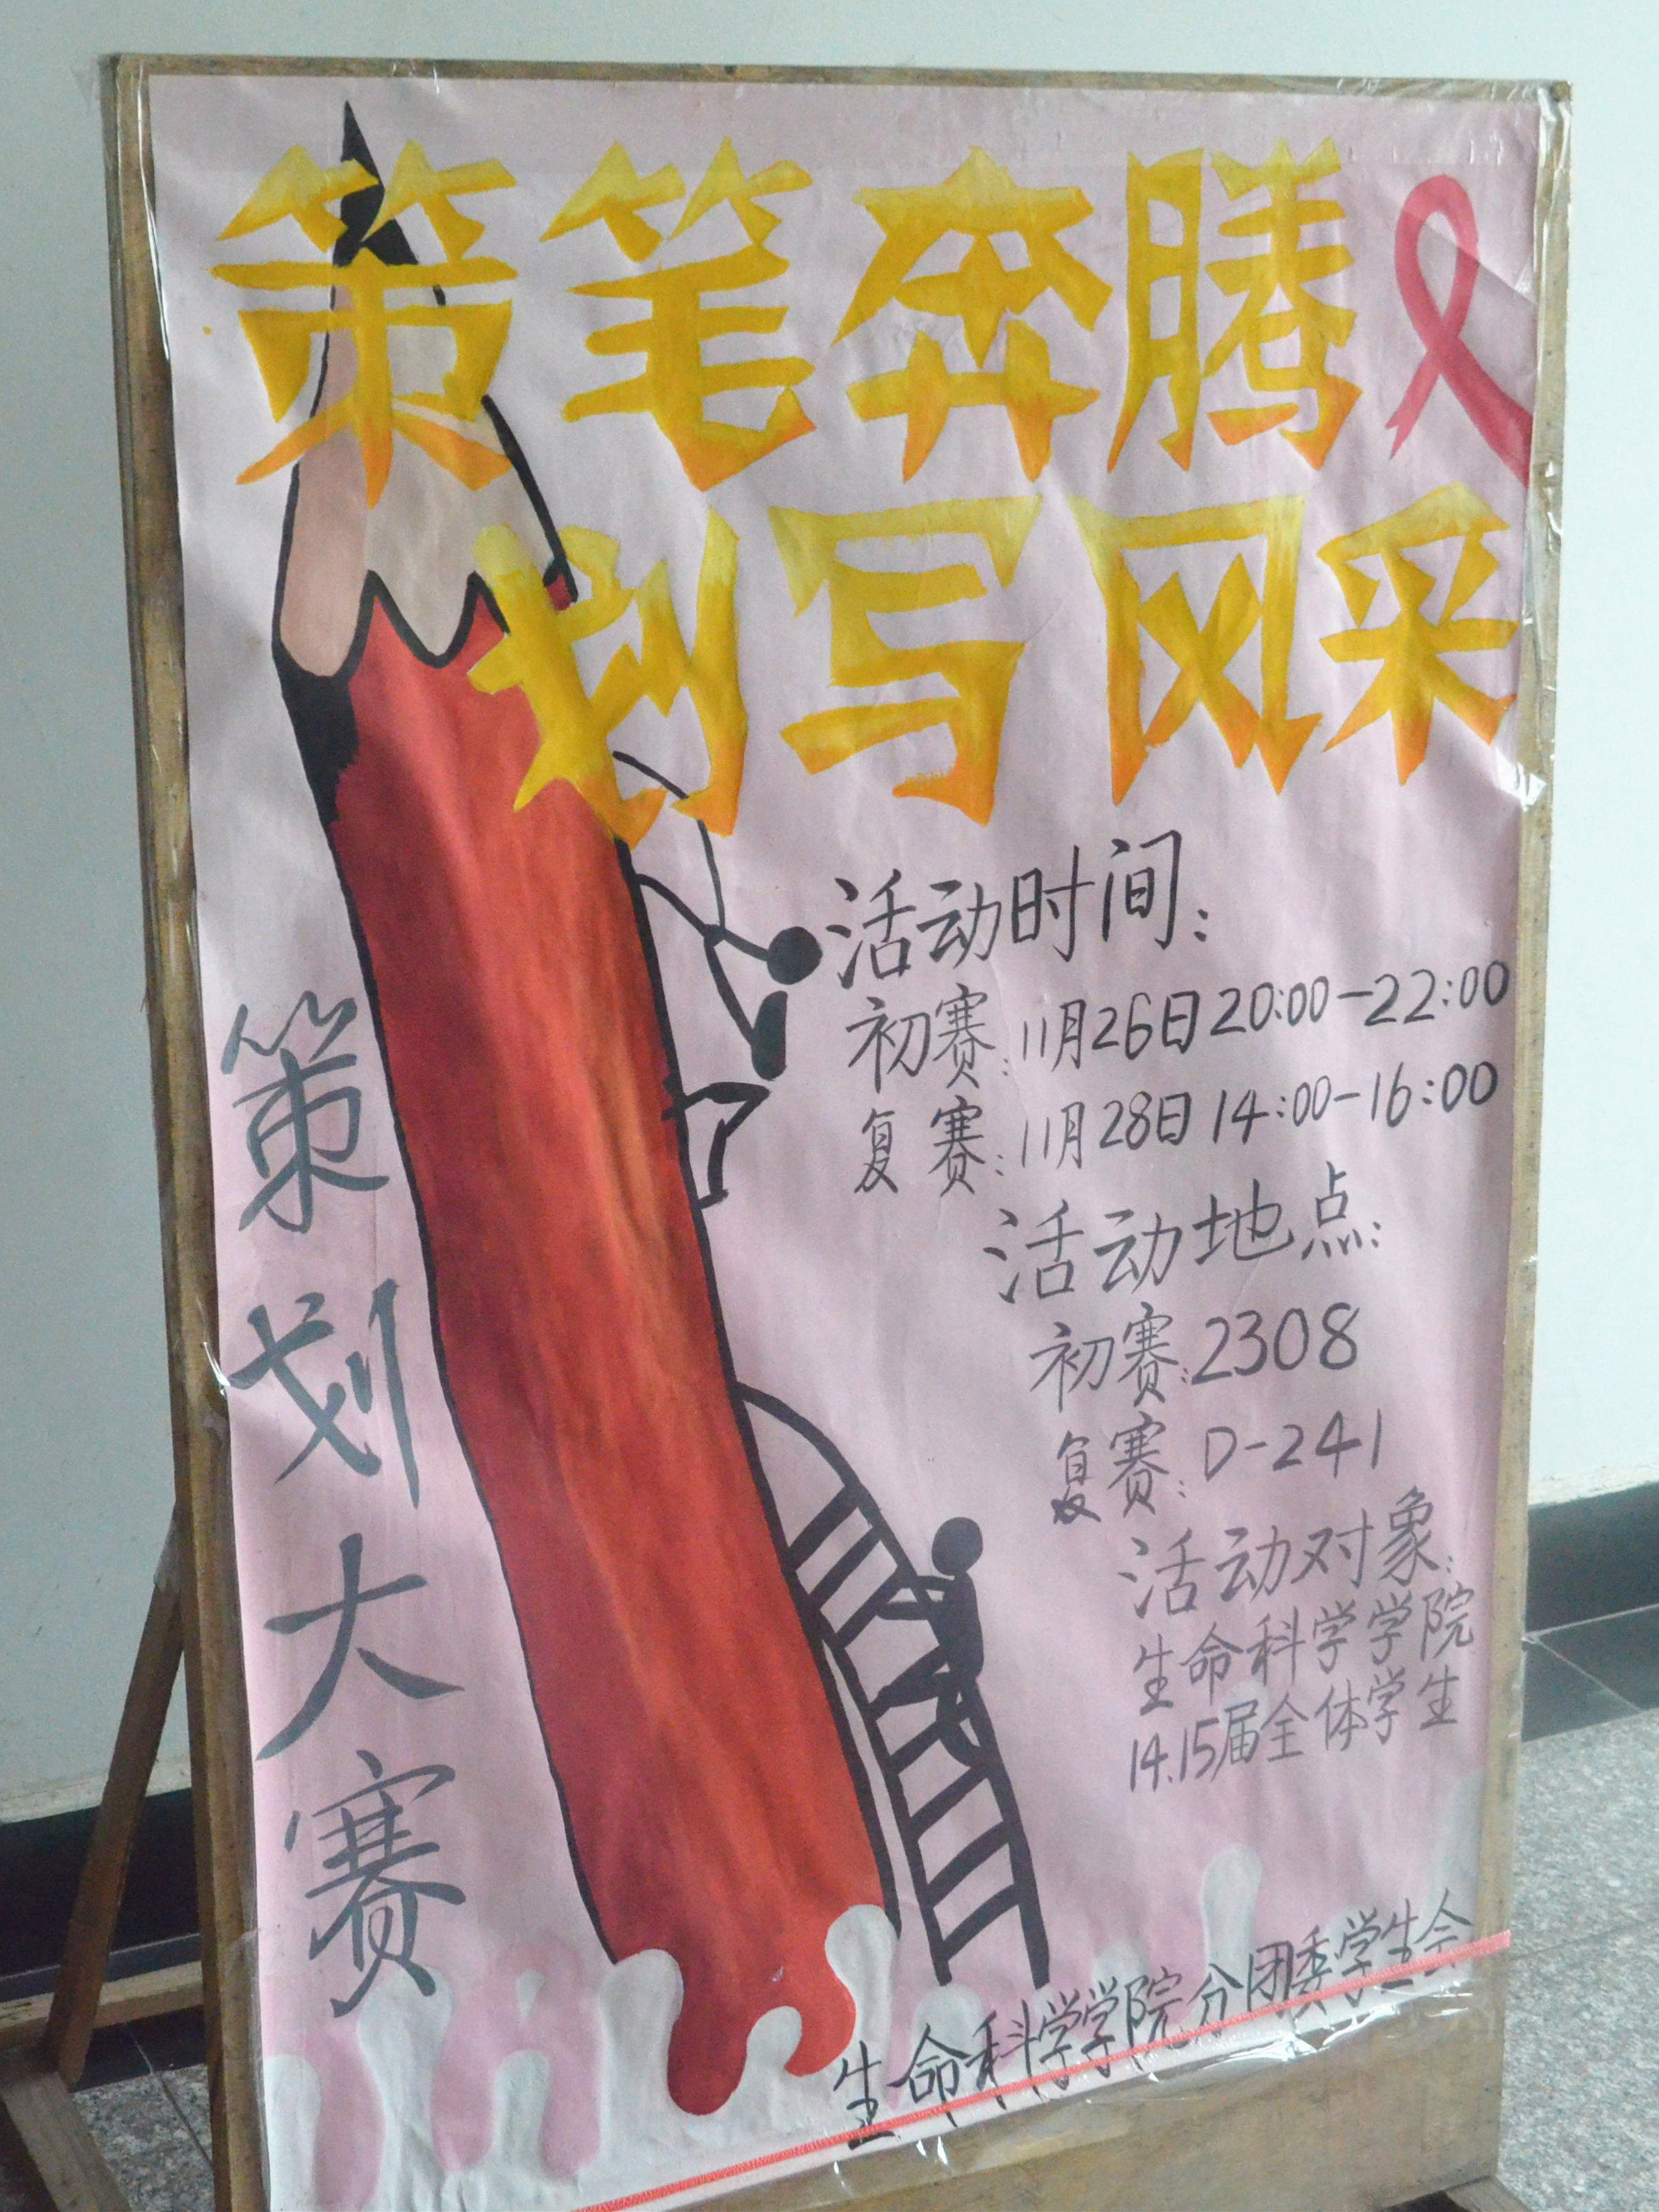 策笔奔腾
划写风采
策划大赛
活动时间:
初赛:11月26日20:00-22:00
复赛:11月28日14:00-16:00
活动地点:
初赛:2308
复赛:D-241
活动对象:
生命科学学院
14.15届全体学生
生命科学学院分团委学生会